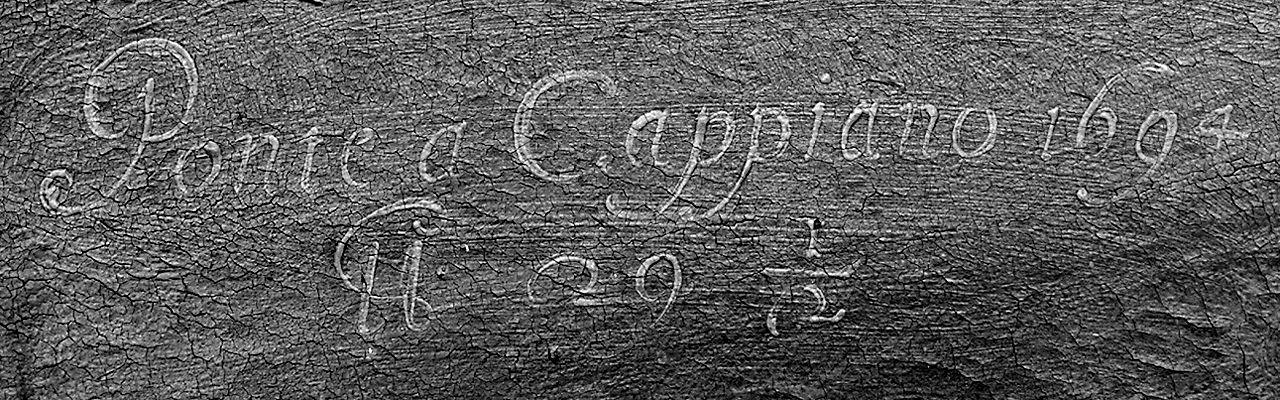 Ponte a Cappiano 1694
₶ 29 1/2